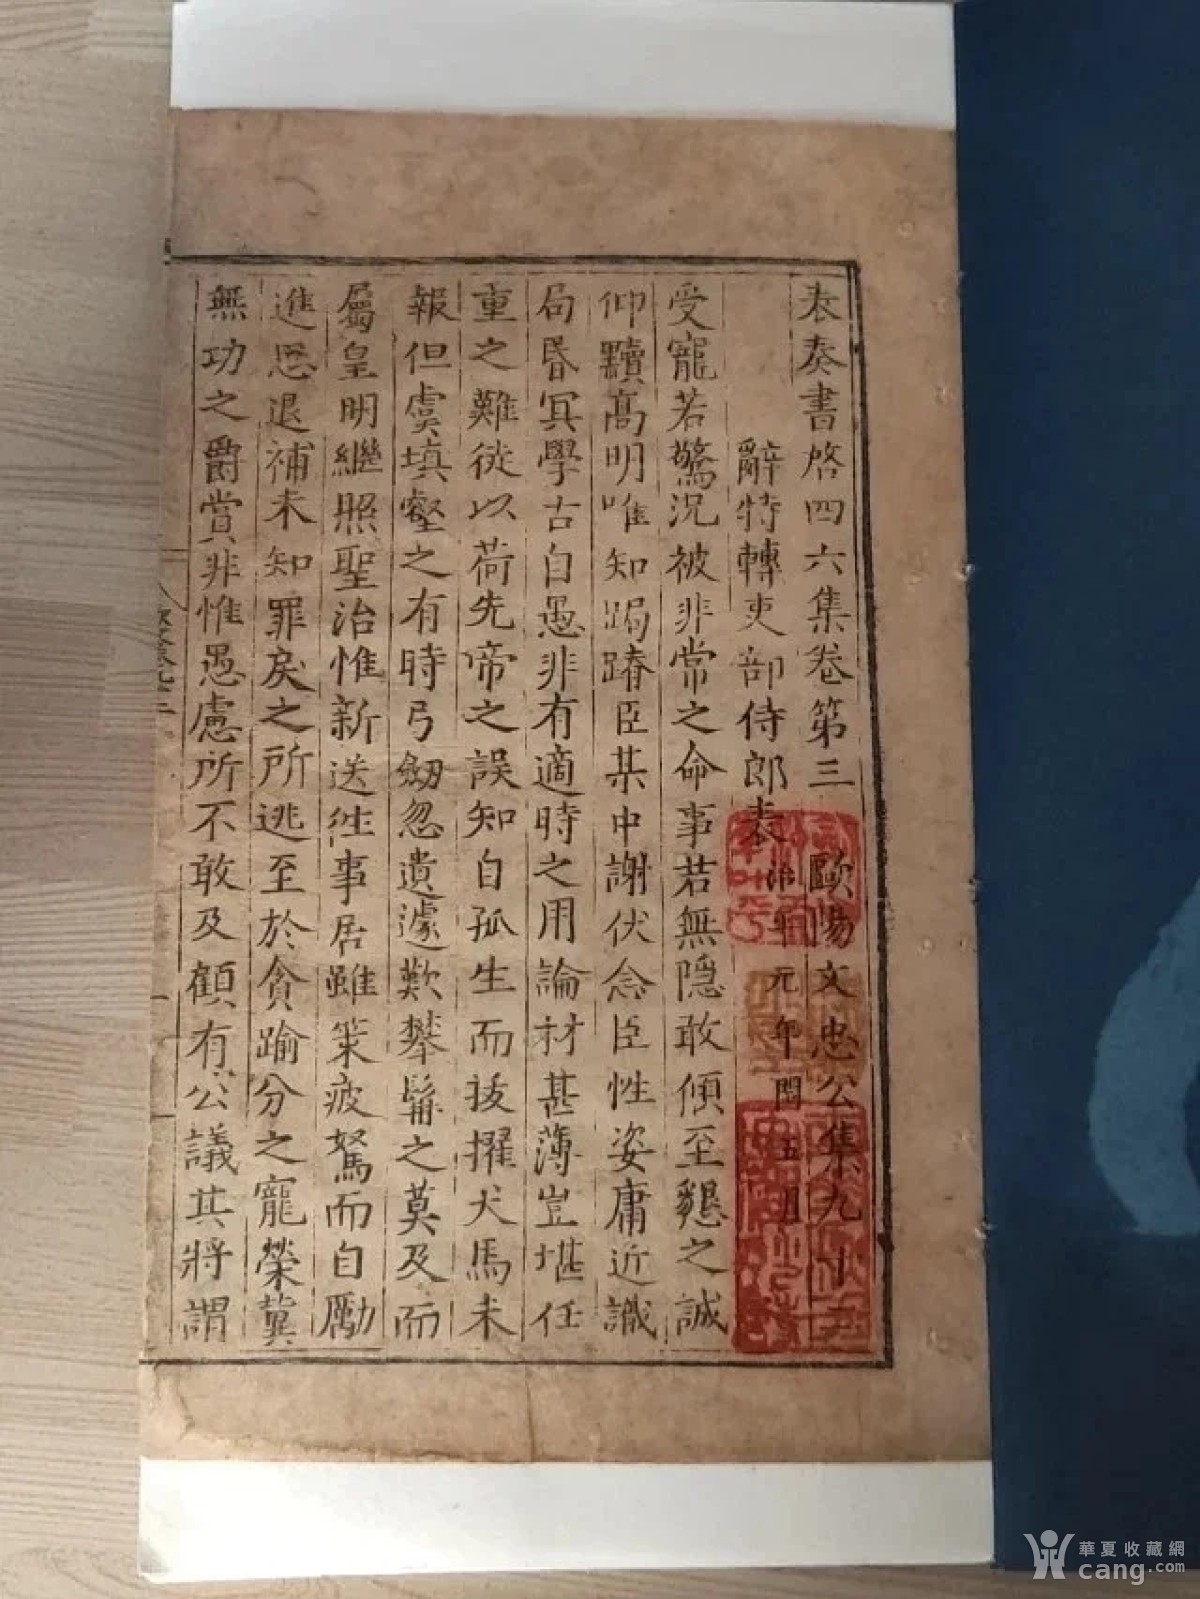 表奏書啓四六集卷第三　歐陽文忠公集九十三
辭特轉吏部侍郎表　治平元年閏五月
受寵若驚况被非常之命事若無隠敢傾至懇之誠
仰黷高明唯知跼蹐臣某中謝伏念臣性姿庸近識
局昏冥學古自愚非有適時之用論材甚薄豈堪任
重之難徒以荷先帝之誤知自孤生而抜擢犬馬未
報但虞填壑之有時弓劒忽遺遽歎攀髯之莫及而
屬皇明繼照聖治惟新送徃事居雖策疲駑而自勵
進思退補未知罪戾之所逃至於貪踰分之寵榮冀
無功之爵賞非惟愚慮所不敢及顧有公議其將謂
華夏收藏網
cang.com